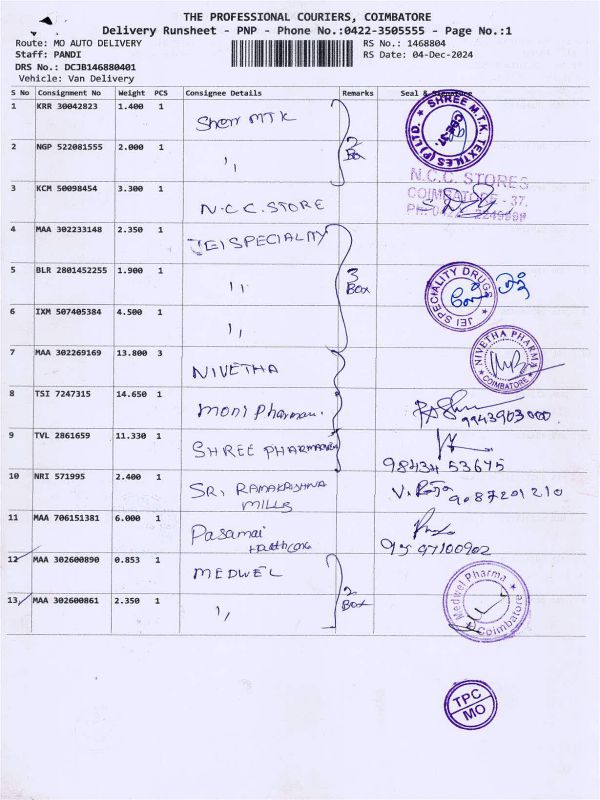 THE PROFESSIONAL COURIERS, COIMBATORE
Delivery Runsheet - PNP - Phone No.:0422-3505555 - Page No.:1
Route: MO AUTO DELIVERY RS No.: 1468804
Staff: PANDI RS Date: 04-Dec-2024
DRS No.: DCJB146880401
Vehicle: Van Delivery
S No Consignment No Weight PCS Consignee Details Remarks Seal & Signature
1 KRR 30042823 1.400 1 Sherr MTK
SHREE M.T.K. TEXTILES (P) LTD.
Cbe-37.
2 NGP 522081555 2.000 1 ,, 2 Box
3 KCM 50098454 3.300 1 N.C.C. STORE
N.C.C. STORES
COIMBATORE - 37.
4 MAA 302233148 2.350 1 JEI SPECIALITY
5 BLR 2801452255 1.900 1 ,, 3 Box
JEI SPECIALITY DRUGS
6 IXM 507405384 4.500 1 ,,
7 MAA 302269169 13.800 3 NIVETHA
NIVETHA PHARMA
COIMBATORE
8 TSI 7247315 14.650 1 moni Pharman. 9943903000
9 TVL 2861659 11.330 1 SHREE 98434 53675
10 NRI 571995 2.400 1 SRI RAMAKRISHNA
MILLS
V. Raja 9087201210
11 MAA 706151381 6.000 1 Pasamai
9597100902
12 MAA 302600890 0.853 1 MEDWEL
13 MAA 302600861 2.350 1 ,, 2 Box
Medwel Pharma
Coimbatore
TPC
MO